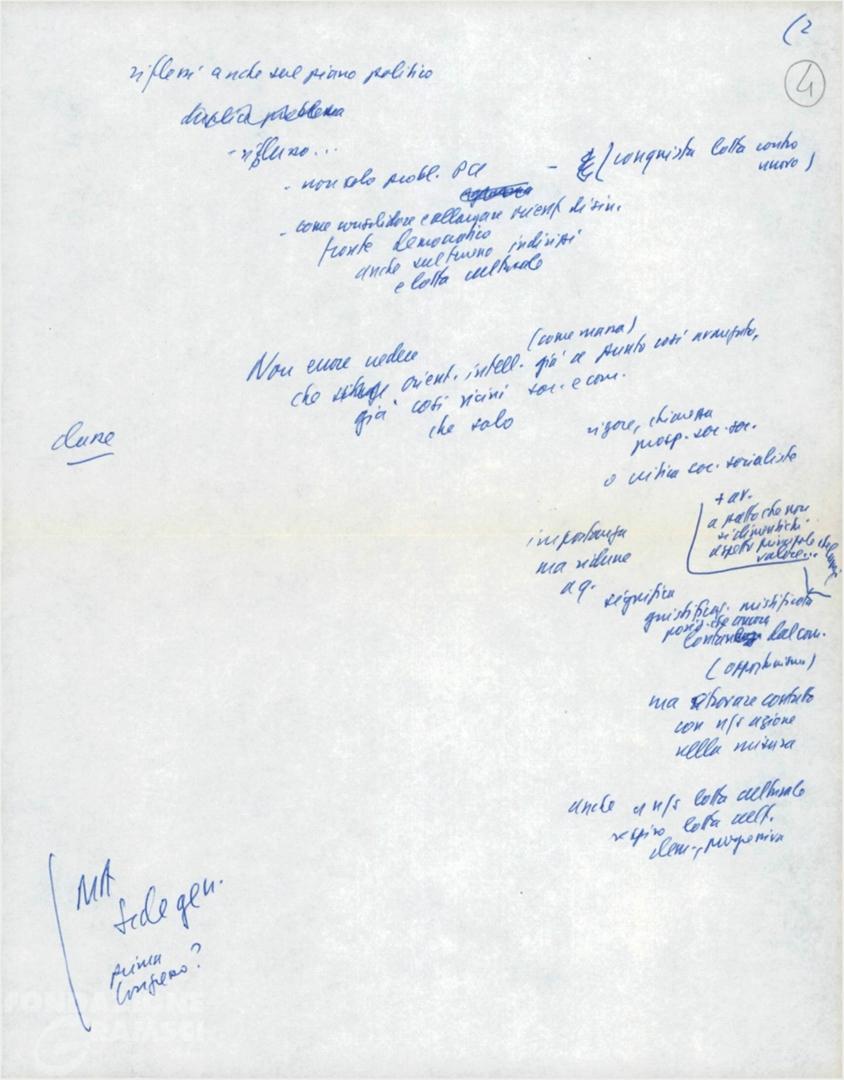 (2
4
riflessi anche sul piano politico
duplice problema
- riflusso...
- non solo probl. PCI - (conquista lotta contro
nuovo)
- come consolidare e allargare orient. di sin.
fronte democratico
anche sul terreno indirizzi
e lotta culturale
Non cuore vedere
(come mania)
che orient. intell. già a punto così avanzato,
già così vicini soc. e com.
che solo
dune
rigore, chiarezza
prosp. soc. soc.
o critica soc. socialista
+ av.
a patto che non
si dimentichi
aspetto principale che
valore...
importanza
ma ridurre
a q.
significa
giustificaz. mistificata
posiz. che ancora
lontan dal com.
(opportunismo)
ma ritrovare contatto
con n/s azione
nella misura
anche a n/s lotta culturale
respiro lotta cult.
dem., progressiva
MA
sede gen.
prima
Congresso?
FONDAZIONE
GRAMSCI